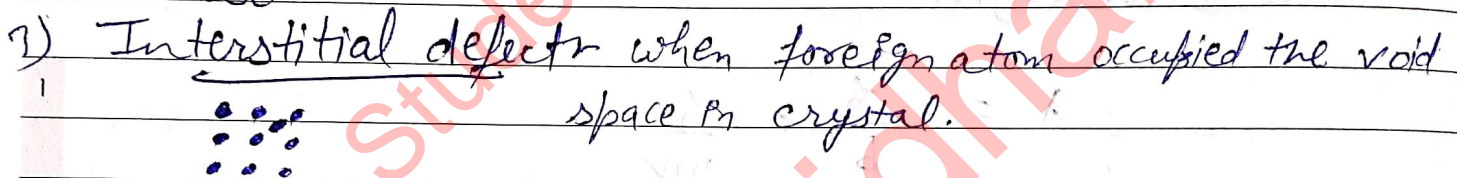 3) Interstitial defects when foreign atom occupied the void
space in crystal.